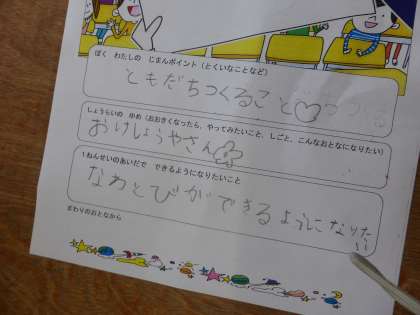 ぼく わたしの じまんポイント（とくいなことなど）
ともだちつくること
しょうらいの ゆめ（おおきくなったら、やってみたいこと、しごと、こんなおとなになりたい）
おけしょうやさん
1ねんせいのあいだで できるようになりたいこと
なわとびができるようになりたい
まわりのおとなから